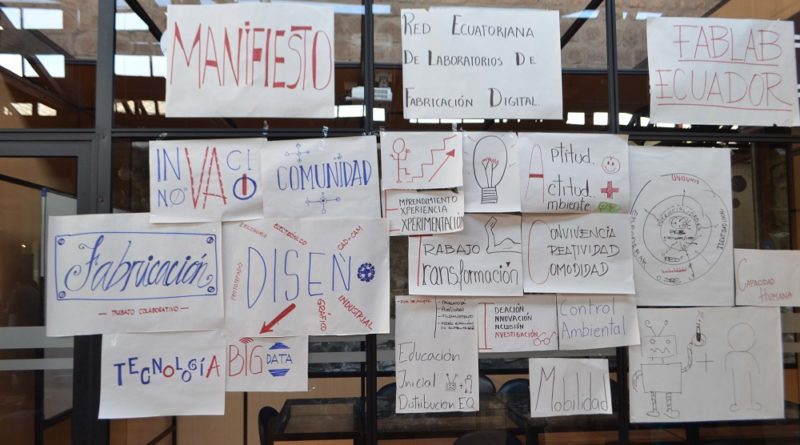 MANIFIESTO
RED ECUATORIANA
DE LABORATORIOS DE
FABRICACIÓN DIGITAL
FABLAB
ECUADOR
INNOVACIÓN
COMUNIDAD
EMPRENDIMIENTO
EXPERIENCIA
EXPERIMENTACIÓN
Aptitud.
Actitud.
Ambiente
Fabricación
- TRABAJO COLABORATIVO -
ELECTRÓNICO
CAD-CAM
DISEÑO
PROTOTIPADO
GRÁFICO
INDUSTRIAL
TRABAJO
Transformación
CONVIVENCIA
CREATIVIDAD
COMODIDAD
CAPACIDAD
HUMANA
TECNOLOGÍA
BIG DATA
IDEACIÓN
INNOVACIÓN
INCLUSIÓN
INVESTIGACIÓN
Control
Ambiental
Educación
Inicial
Distribución EQ
Movilidad